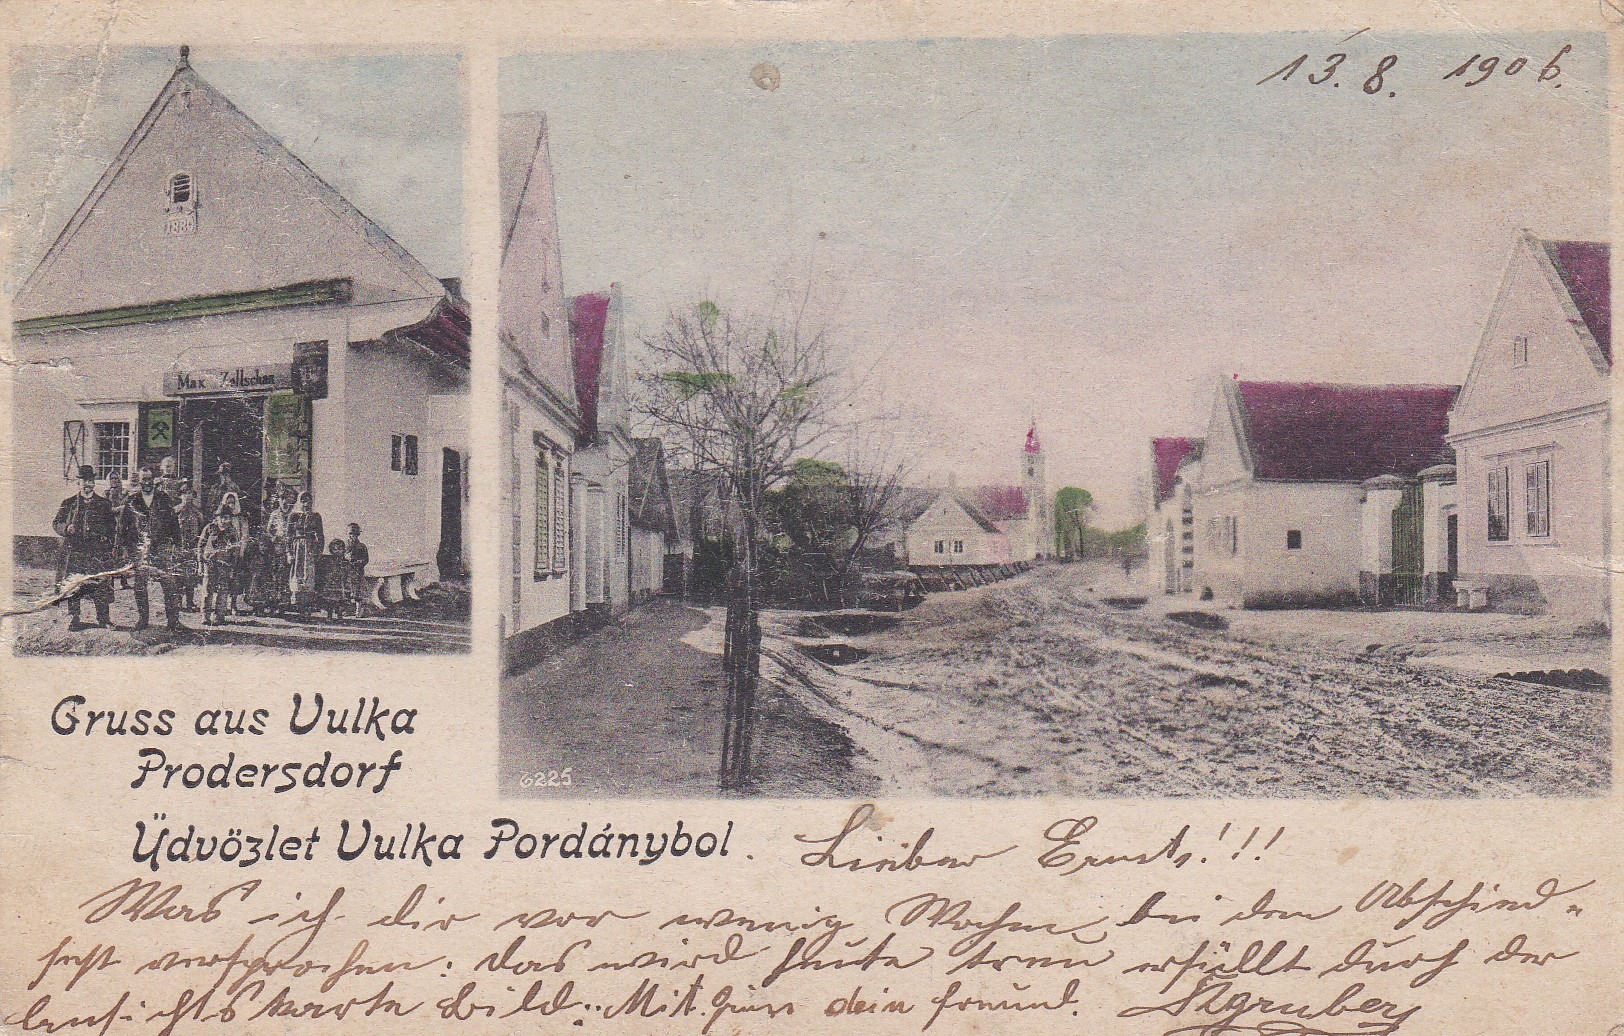 13. 8. 1906.
1889
Max Zollschan
Gruss aus Vulka
Prodersdorf
6225
Üdvözlet Vulka Pordánybol.
Lieber Ernst!!!
Was ich dir vor wenig Wochen bei dem Abschied-
fest versprochen: das wird heute treu erfüllt durch der
Ansichtskarte Bild: Mit dein Freund. Agruber